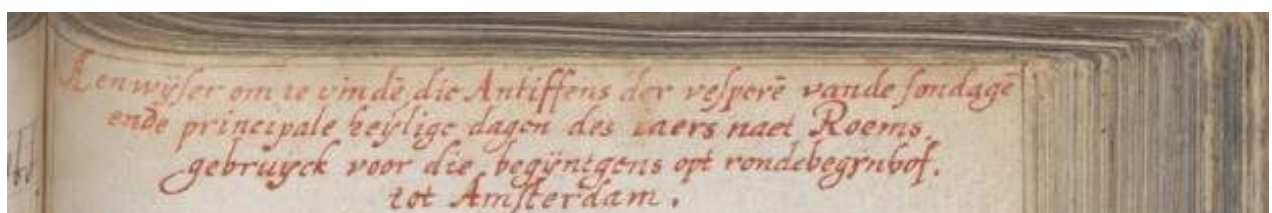 Aenwijser om te vindē die Antiffens der vesperē vande sondagē
ende principale heijlige dagen des iaers naet Roems.
gebruyck voor die begijntgens opt rondebegijnhof.
tot Amsterdam.